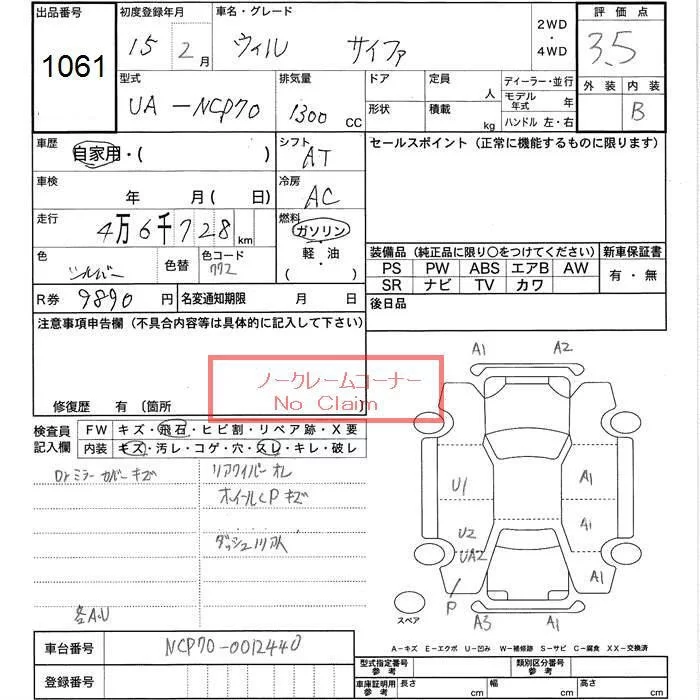 出品番号
1061
初度登録年月
15 2月
車名・グレード
ウィル サイファ
2WD
・
4WD
評価点
3.5
外装 内装
B
型式
UA-NCP70
排気量
1300 CC
ドア
形状
定員 人
積載 kg
ディーラー・並行
モデル年式 年
ハンドル 左・右
車歴
自家用・( )
シフト
AT
セールスポイント (正常に機能するものに限ります)
車検
年 月( 日)
冷房
AC
走行
4万6千728km
燃料
ガソリン
軽・油
( )
色
シルバー
色替
色コード
772
装備品 (純正品に限り○をつけてください)
PS PW ABS エアB AW
SR ナビ TV カワ
新車保証書
有・無
R券 9890円
名変通知期限 月 日
後日品
注意事項申告欄 (不具合内容等は具体的に記入して下さい)
ノークレームコーナー
No Claim
修復歴 有 〔箇所 〕
検査員
記入欄
FW キズ・飛石・ヒビ割・リペア跡・X要
内装 キズ・汚レ・コゲ・穴・スレ・キレ・破レ
Drミラーカバーキズ
リアワイパーオレ
ホイールCPキズ
各A.U
A1 A2
U1 A1
U2 A1
UA2 A1
P
A3 A1
スペア
A-キズ E-エクボ U-凹み W-補修跡 S-サビ C-腐食 XX-交換済
車台番号
NCP70-0012440
登録番号
型式指定番号
参考
類別区分番号
参考
車庫証明用
参考
長さ cm
幅 cm
高さ cm